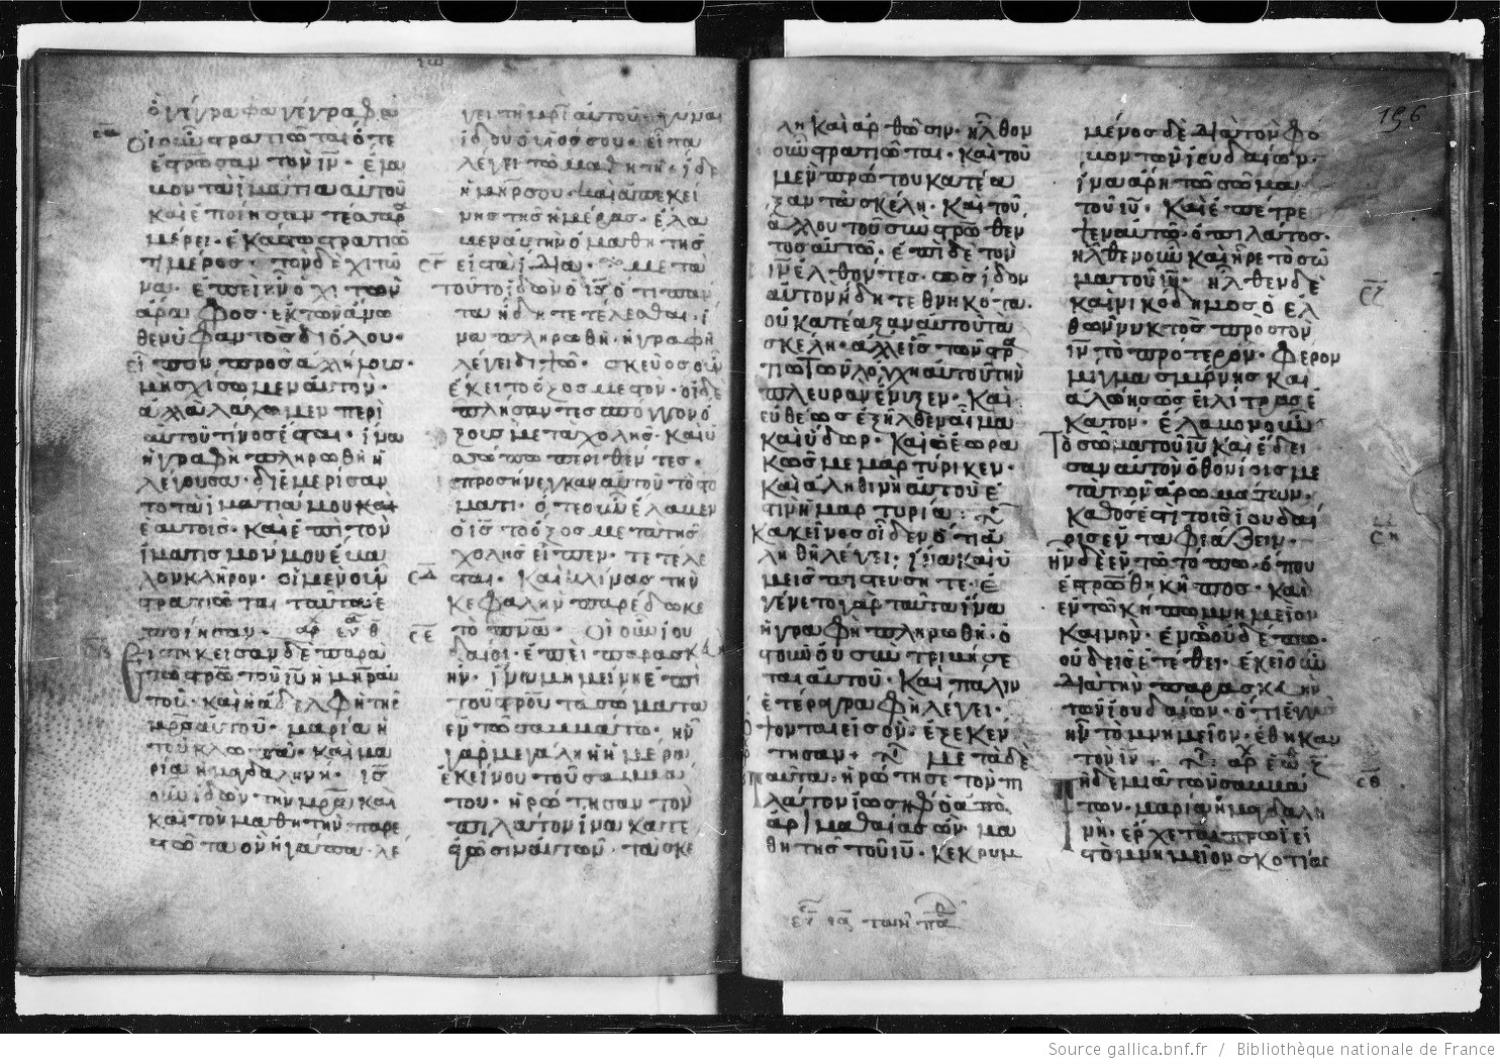 ὃ γέγραφα γέγραφα
Οἱ οὖν στρατιῶται ὅτε
ἐσταύρωσαν τὸν ιν· ἔλα
μον τὰ ἱμάτια αὐτοῦ
καὶ ἐποίησαν τέσσαρα
μέρει· ἑκάστω στρατιώ
τι μέρος· τὸν δὲ χιτῶ
να· ἐπεὶ ἦν ὁ χιτὼν
ἄραφος· ἐκ τῶν ἄνω
θεν ὑφαντὸς δι ὅλου·
εἶπον πρὸς ἀλλήλους·
μὴ σχίσωμεν αὐτόν·
ἀλλὰ λάχωμεν περὶ
αὐτοῦ τίνος ἔσται· ἵνα
ἡ γραφὴ πληρωθῆ ἡ
λέγουσα· διεμερίσαν
το τὰ ἱμάτιά μου κατ
ἑαυτοῖς· καὶ ἐπὶ τὸν
ἱματισμόν μου ἔβα
λον κλῆρον· οἱ μὲν οὖν
στρατιῶται ταῦτα ἐ
ποίησαν·
Εἱστήκεισαν δὲ παρα
τῶ στρω τοῦ ιυ ἡ μηρ αὐ
τοῦ· καὶ ἡ ἀδελφὴ τῆς
μρς αὐτοῦ· μαρία ἡ
τοῦ κλωπᾶ· καὶ μα
ρία ἡ μαγδαληνή· ις
οὖν ἰδὼν τὴν μρα· καὶ
καὶ τὸν μαθητὴν παρε
στῶτα ὃν ἠγάπα· λέ
γει τῆ μρὶ αὐτοῦ· γύναι
ἰδοὺ ὁ υἱός σου· εἶτα
λέγει τῶ μαθητῆ· ἴδε
ἡ μηρ σου· καὶ ἀπ ἐκεί
νης τῆς ἡμέρας· ἔλα
μεν αὐτὴν ὁ μαθητὴς
εἰς τὰ ἴδια· μετὰ
τοῦτο ἰδὼν ὁ ις ὅτι πάν
τα ἤδη τετέλεσθαι· ἵ
να πληρωθῆ ἡ γραφὴ
λέγει διψῶ· σκεῦος οὖν
ἔκειτο ὄξος μεστόν· οἱ δὲ
πλήσαντες σπόγγον ὄ
ξους μετὰ χολῆς· καὶ ὑ
σσώπω περιθέντες·
προσήνεγκαν αὐτοῦ τὸ στό
ματι· ὅτε οὖν ἔλαμεν
ὁ ις τὸ ὄξος μετὰ τῆς
χολῆς εἶπεν· τετέλε
σται· καὶ κλίνας τὴν
κεφαλὴν παρέδωκε
τὸ πνα· Οἱ οὖν ἰου
δαῖοι· ἐπεὶ παρασκευὴ
ἦν· ἵνα μὴ μείνη ἐπὶ
τοῦ στρου τὰ σώματα
ἐν τῶ σαββάτω· ἦν
γὰρ μεγάλη ἡ ἡμέρα
ἐκείνου τοῦ σαββά
του· ἠρώτησαν τὸν
πιλάτον ἵνα κατε
αγῶσιν αὐτῶν· τὰ σκέ
λη καὶ ἀρθῶσιν· ἦλθον
οὖν στρατιῶται· καὶ τοῦ
μὲν πρώτου κατέα
ξαν τὰ σκέλη· καὶ τοῦ
ἄλλου τοῦ συστρωθέν
τος αὐτῶ· ἐπὶ δὲ τὸν
ιν ἐλθόντες· ὡς ἴδον
αὐτὸν ἤδη τεθνηκότα·
οὐ κατέαξαν αὐτοῦ τὰ
σκέλη· ἀλλ εἷς τῶν στρα
τιωτῶν λόγχη αὐτοῦ τὴν
πλευρὰν ἔνυξεν· καὶ
εὐθέως ἐξῆλθεν αἷμα
καὶ ὕδωρ· καὶ ὁ ἑωρα
κὼς μεμαρτύρικεν·
καὶ ἀληθινὴ αὐτοῦ ἐ
στιν ἡ μαρτυρία:
κἀκεῖνος οἶδεν ὅτι ἀ
ληθῆ λέγει· ἵνα καὶ ὑ
μεῖς πιστεύσητε· ἐ
γένετο γὰρ ταῦτα ἵνα
ἡ γραφὴ πληρωθῆ· ὀ
στοῦν οὐ συντριβήσε
ται αὐτοῦ· καὶ πάλιν
ἑτέρα γραφὴ λέγει·
ὄψονται εἰς ὃν ἐξεκέν
τησαν + μετὰ δὲ
ταῦτα· ἠρώτησε τὸν πι
λάτον ἰωσὴφ ὁ ἀπὸ
ἀριμαθαίας ὢν· μα
θητὴς τοῦ ιυ· κεκρυμ
μένος δὲ διὰ τὸν φό
μον τῶν ἰουδαίων·
ἵνα ἄρη τὸ σῶμα
τοῦ ιυ· καὶ ἐπέτρε
ψεν αὐτῶ· ὁ πιλάτος·
ἦλθεν οὖν καὶ ἦρε τὸ σῶ
μα τοῦ ιυ· ἦλθεν δὲ
καὶ νικόδημος ὁ ἐλ
θὼν νυκτὸς πρὸς τὸν
ιν τὸ πρότερον· φέρον
μίγμα σμύρνης καὶ
ἀλώης ὡς εἰ λίτρας ἑ
κατόν· ἔλαμον οὖν
Τὸ σῶμα τοῦ ιυ καὶ ἔδει
σαν αὐτὸν ὀθονίοις με
τὰ τῶν ἀρωμάτων·
καθὼς ἐστὶ τοῖς ἰουδαί
οις ἐνταφιάζειν·
ἦν δὲ ἐν τῶ τόπω· ὅπου
ἐστρώθη κῆπος· καὶ
ἐν τῶ κήπω μνημεῖον
καινόν· ἐν ὧ οὐδέπω·
οὐδεὶς ἐτέθει· ἐκεῖ οὖν
διὰ τὴν παρασκευὴν
τῶν ἰουδαίων· ὅτι ἐγγὺς
ἦν τὸ μνημεῖον· ἔθηκαν
τὸν ιν +
Τῆ δὲ μιᾶ τῶν σαββά
των· μαρία ἡ μαγδαλη
νὴ· ἔρχεται πρωῒ εἰς
τὸ μνημεῖον σκοτίας
196
Source gallica.bnf.fr / Bibliothèque nationale de France